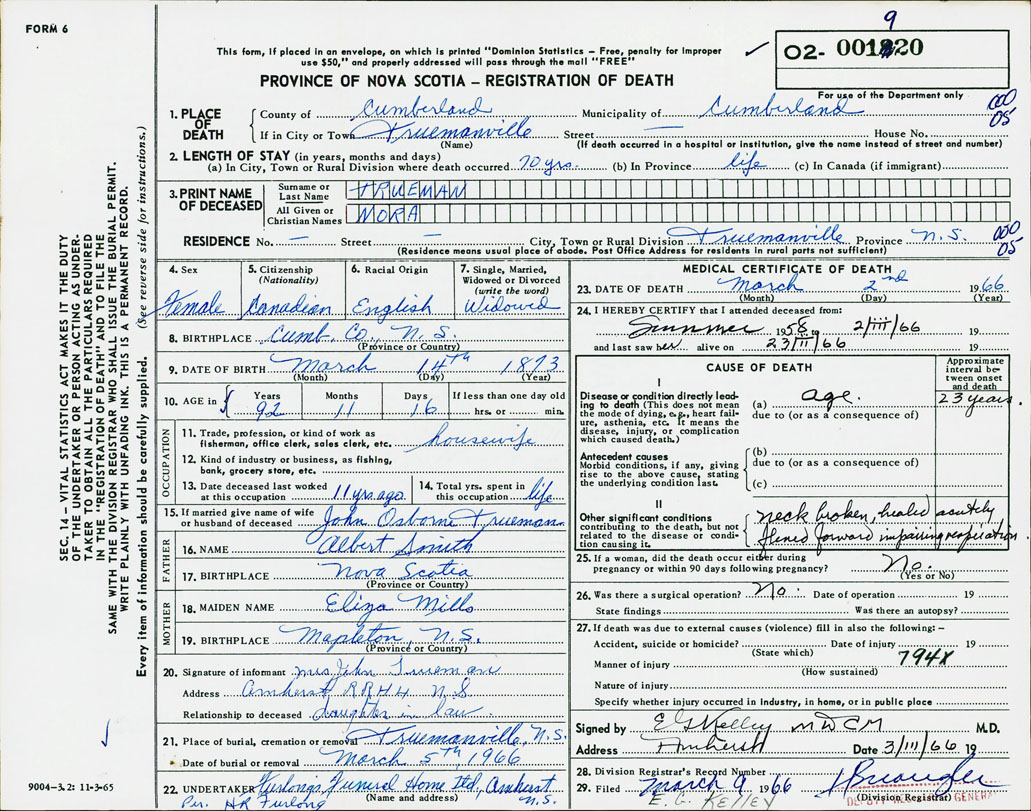 FORM 6
This form, if placed in an envelope, on which is printed "Dominion Statistics – Free, penalty for improper
use $50," and properly addressed will pass through the mail "FREE"
PROVINCE OF NOVA SCOTIA – REGISTRATION OF DEATH
✓
9
O2- 001820
For use of the Department only
000
05
1. PLACE OF DEATH
County of Cumberland Municipality of Cumberland
If in City or Town Truemanville Street — House No.
(Name) (If death occurred in a hospital or institution, give the name instead of street and number)
2. LENGTH OF STAY (in years, months and days)
(a) In City, Town or Rural Division where death occurred 70 yrs. (b) In Province life (c) In Canada (if immigrant)
3. PRINT NAME OF DECEASED
Surname or Last Name TRUEMAN
All Given or Christian Names NORA
RESIDENCE No. — Street — City, Town or Rural Division Truemanville Province N.S.
000
05
(Residence means usual place of abode. Post Office Address for residents in rural parts not sufficient)
4. Sex
Female
5. Citizenship
(Nationality)
Canadian
6. Racial Origin
English
7. Single, Married,
Widowed or Divorced
(write the word)
Widowed
8. BIRTHPLACE Cumb. Co., N.S.
(Province or Country)
9. DATE OF BIRTH March 14th 1873
(Month) (Day) (Year)
10. AGE in Years Months Days If less than one day old
92 11 16 hrs. or min.
OCCUPATION
11. Trade, profession, or kind of work as
fisherman, office clerk, sales clerk, etc. housewife
12. Kind of industry or business, as fishing,
bank, grocery store, etc.
13. Date deceased last worked
at this occupation 11 yrs ago
14. Total yrs. spent in
this occupation life
15. If married give name of wife
or husband of deceased John Osborne Trueman
FATHER
16. NAME Albert Smith
17. BIRTHPLACE Nova Scotia
(Province or Country)
MOTHER
18. MAIDEN NAME Eliza Mills
19. BIRTHPLACE Mapleton, N.S.
(Province or Country)
20. Signature of informant Mrs John Trueman
Address Amherst RR#4 N.S
Relationship to deceased daughter in law
21. Place of burial, cremation or removal Truemanville, N.S.
Date of burial or removal March 5th, 1966
22. UNDERTAKER Furlong's Funeral Home Ltd, Amherst
(Name and address) N.S.
Per. HR Furlong
MEDICAL CERTIFICATE OF DEATH
23. DATE OF DEATH March 2nd 1966
(Month) (Day) (Year)
24. I HEREBY CERTIFY that I attended deceased from:
Summer 1958 2/III/66 19
and last saw her alive on 23/II/66 19
CAUSE OF DEATH
Approximate
interval be-
tween onset
and death
I
Disease or condition directly lead-
ing to death (This does not
mean the mode of dying, e.g., heart fail-
ure, asthenia, etc. It means the
disease, injury, or complication
which caused death.)
(a) age. 23 years.
due to (or as a consequence of)
Antecedent causes
Morbid conditions, if any, giving
rise to the above cause, stating
the underlying condition last.
(b)
due to (or as a consequence of)
(c)
II
Other significant conditions
contributing to the death, but not
related to the disease or condi-
tion causing it.
neck broken, healed acutely
flexed forward impairing respiration.
25. If a woman, did the death occur either during
pregnancy or within 90 days following pregnancy? No.
(Yes or No)
26. Was there a surgical operation? No. Date of operation 19
State findings Was there an autopsy?
27. If death was due to external causes (violence) fill in also the following: –
Accident, suicide or homicide? Date of injury 19
(State which) 794X
Manner of injury
(How sustained)
Nature of injury
Specify whether injury occurred in industry, in home, or in public place
Signed by E G Kelley M D C M M.D.
Address Amherst Date 3/III/66 19
28. Division Registrar's Record Number
29. Filed March 9 1966
(Division Registrar)
DEPUTY REGISTRAR GENERAL
E. G. KELLEY
SEC. 14 – VITAL STATISTICS ACT MAKES IT THE DUTY
OF THE UNDERTAKER OR PERSON ACTING AS UNDER-
TAKER TO OBTAIN ALL THE PARTICULARS REQUIRED
IN THE "REGISTRATION OF DEATH" AND TO FILE THE
SAME WITH THE DIVISION REGISTRAR WHO SHALL ISSUE THE BURIAL PERMIT.
WRITE PLAINLY WITH UNFADING INK. THIS IS A PERMANENT RECORD.
Every item of information should be carefully supplied. (See reverse side for instructions.)
✓
9004-3.2: 11-3-65